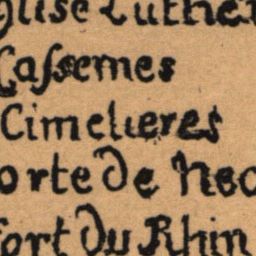 glise Luther
Cassemes
Cimetieres
orte de Nec
fort du Rhin